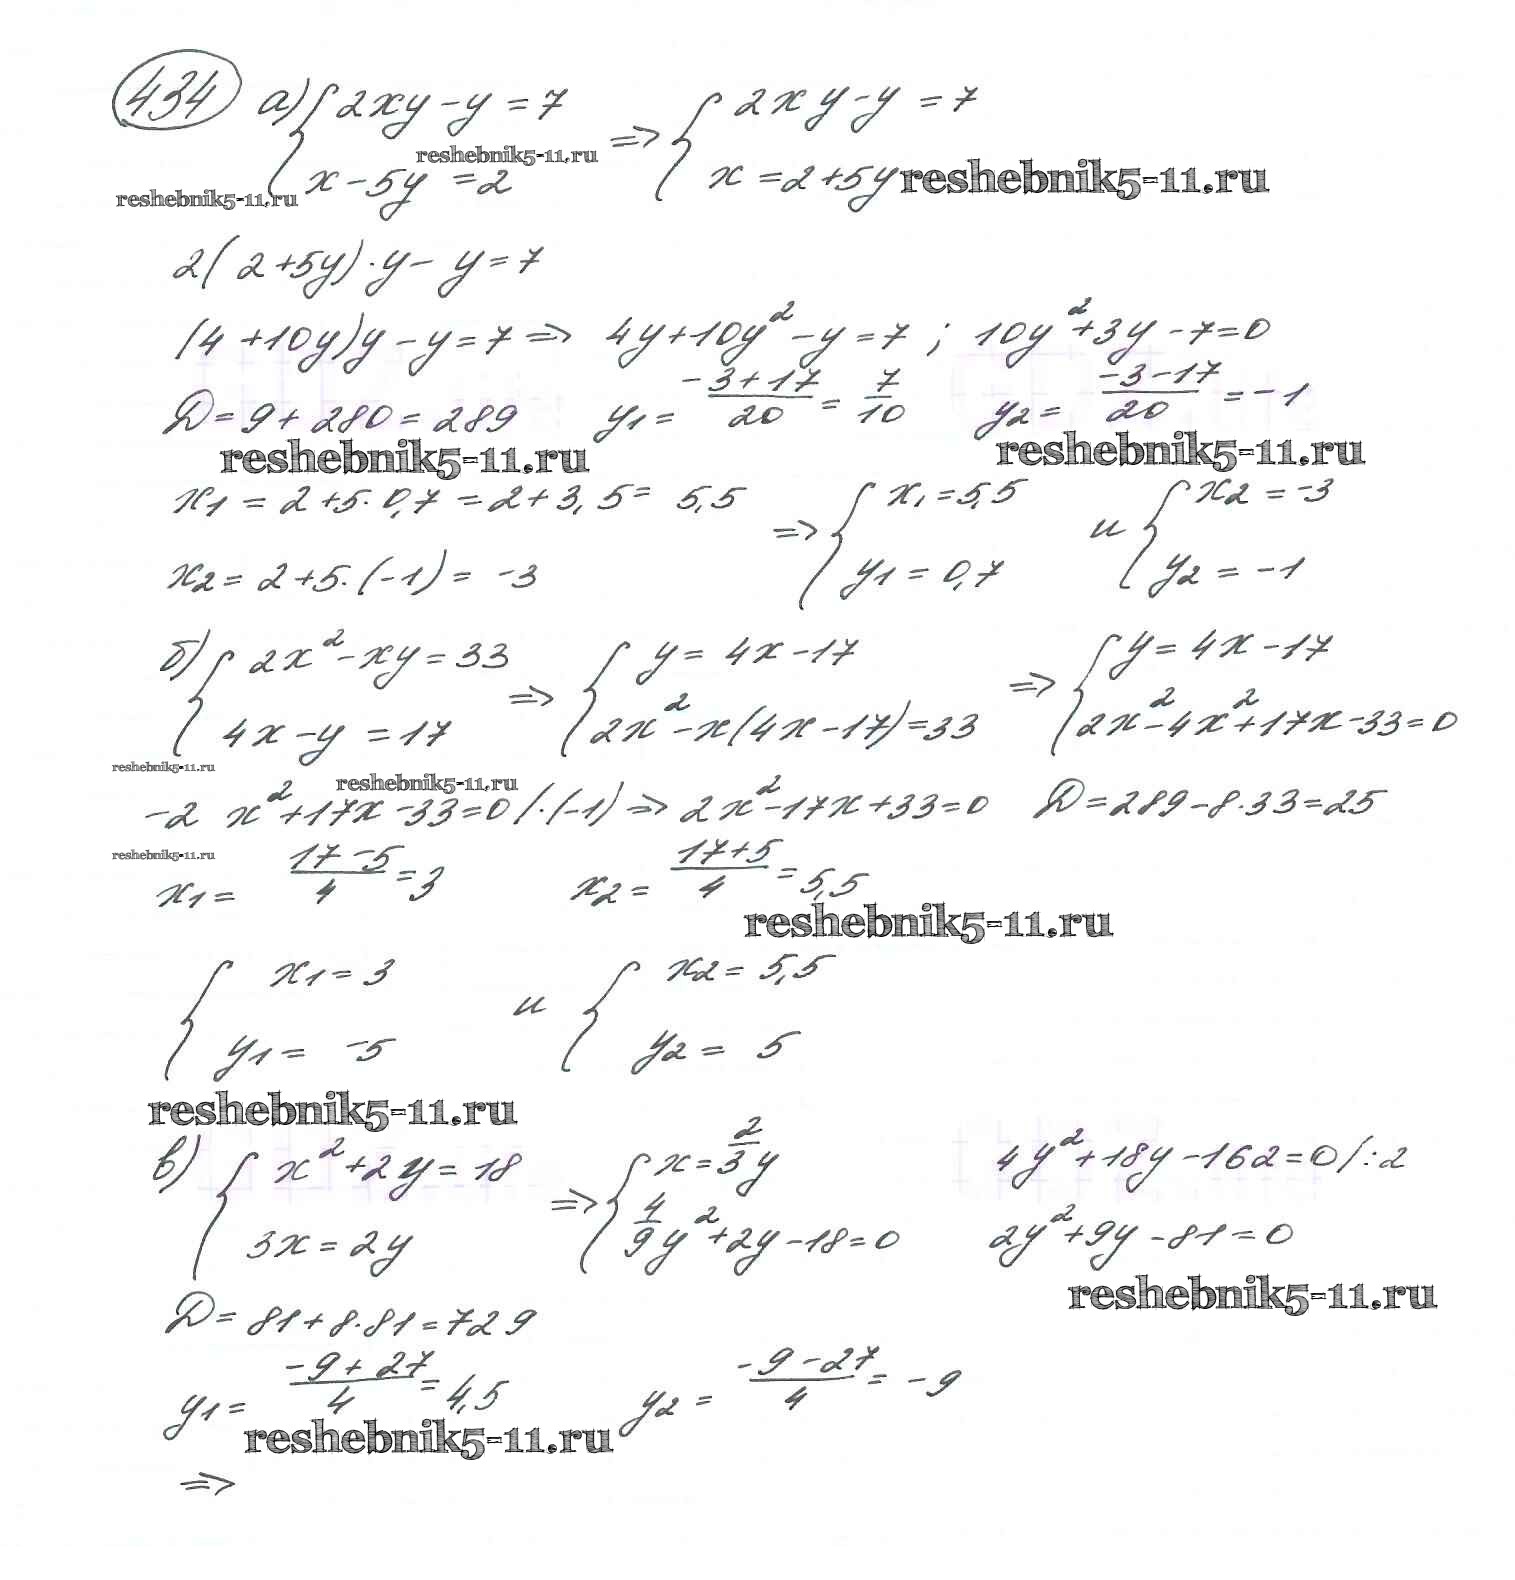 434 а) { 2xy - y = 7 => { 2xy - y = 7
reshebnik5-11.ru
x - 5y = 2 x = 2 + 5y reshebnik5-11.ru
reshebnik5-11.ru
2(2+5y)·y - y = 7
(4+10y)y - y = 7 => 4y + 10y² - y = 7 ; 10y² + 3y - 7 = 0
D = 9 + 280 = 289 y1 = (-3+17)/20 = 7/10 y2 = (-3-17)/20 = -1
reshebnik5-11.ru reshebnik5-11.ru
x1 = 2 + 5·0,7 = 2 + 3,5 = 5,5 => { x1 = 5,5 и { x2 = -3
x2 = 2 + 5·(-1) = -3 y1 = 0,7 y2 = -1
б) { 2x² - xy = 33 => { y = 4x - 17 => { y = 4x - 17
4x - y = 17 2x² - x(4x - 17) = 33 2x² - 4x² + 17x - 33 = 0
reshebnik5-11.ru reshebnik5-11.ru
-2 x² + 17x - 33 = 0 /·(-1) => 2x² - 17x + 33 = 0 D = 289 - 8·33 = 25
reshebnik5-11.ru
x1 = (17-5)/4 = 3 x2 = (17+5)/4 = 5,5
reshebnik5-11.ru
{ x1 = 3 и { x2 = 5,5
y1 = -5 y2 = 5
reshebnik5-11.ru
в) { x² + 2y = 18 => { x = 2/3 y 4y² + 18y - 162 = 0 /:2
3x = 2y 4/9 y² + 2y - 18 = 0 2y² + 9y - 81 = 0
reshebnik5-11.ru
D = 81 + 8·81 = 729
y1 = (-9+27)/4 = 4,5 y2 = (-9-27)/4 = -9
reshebnik5-11.ru
=>